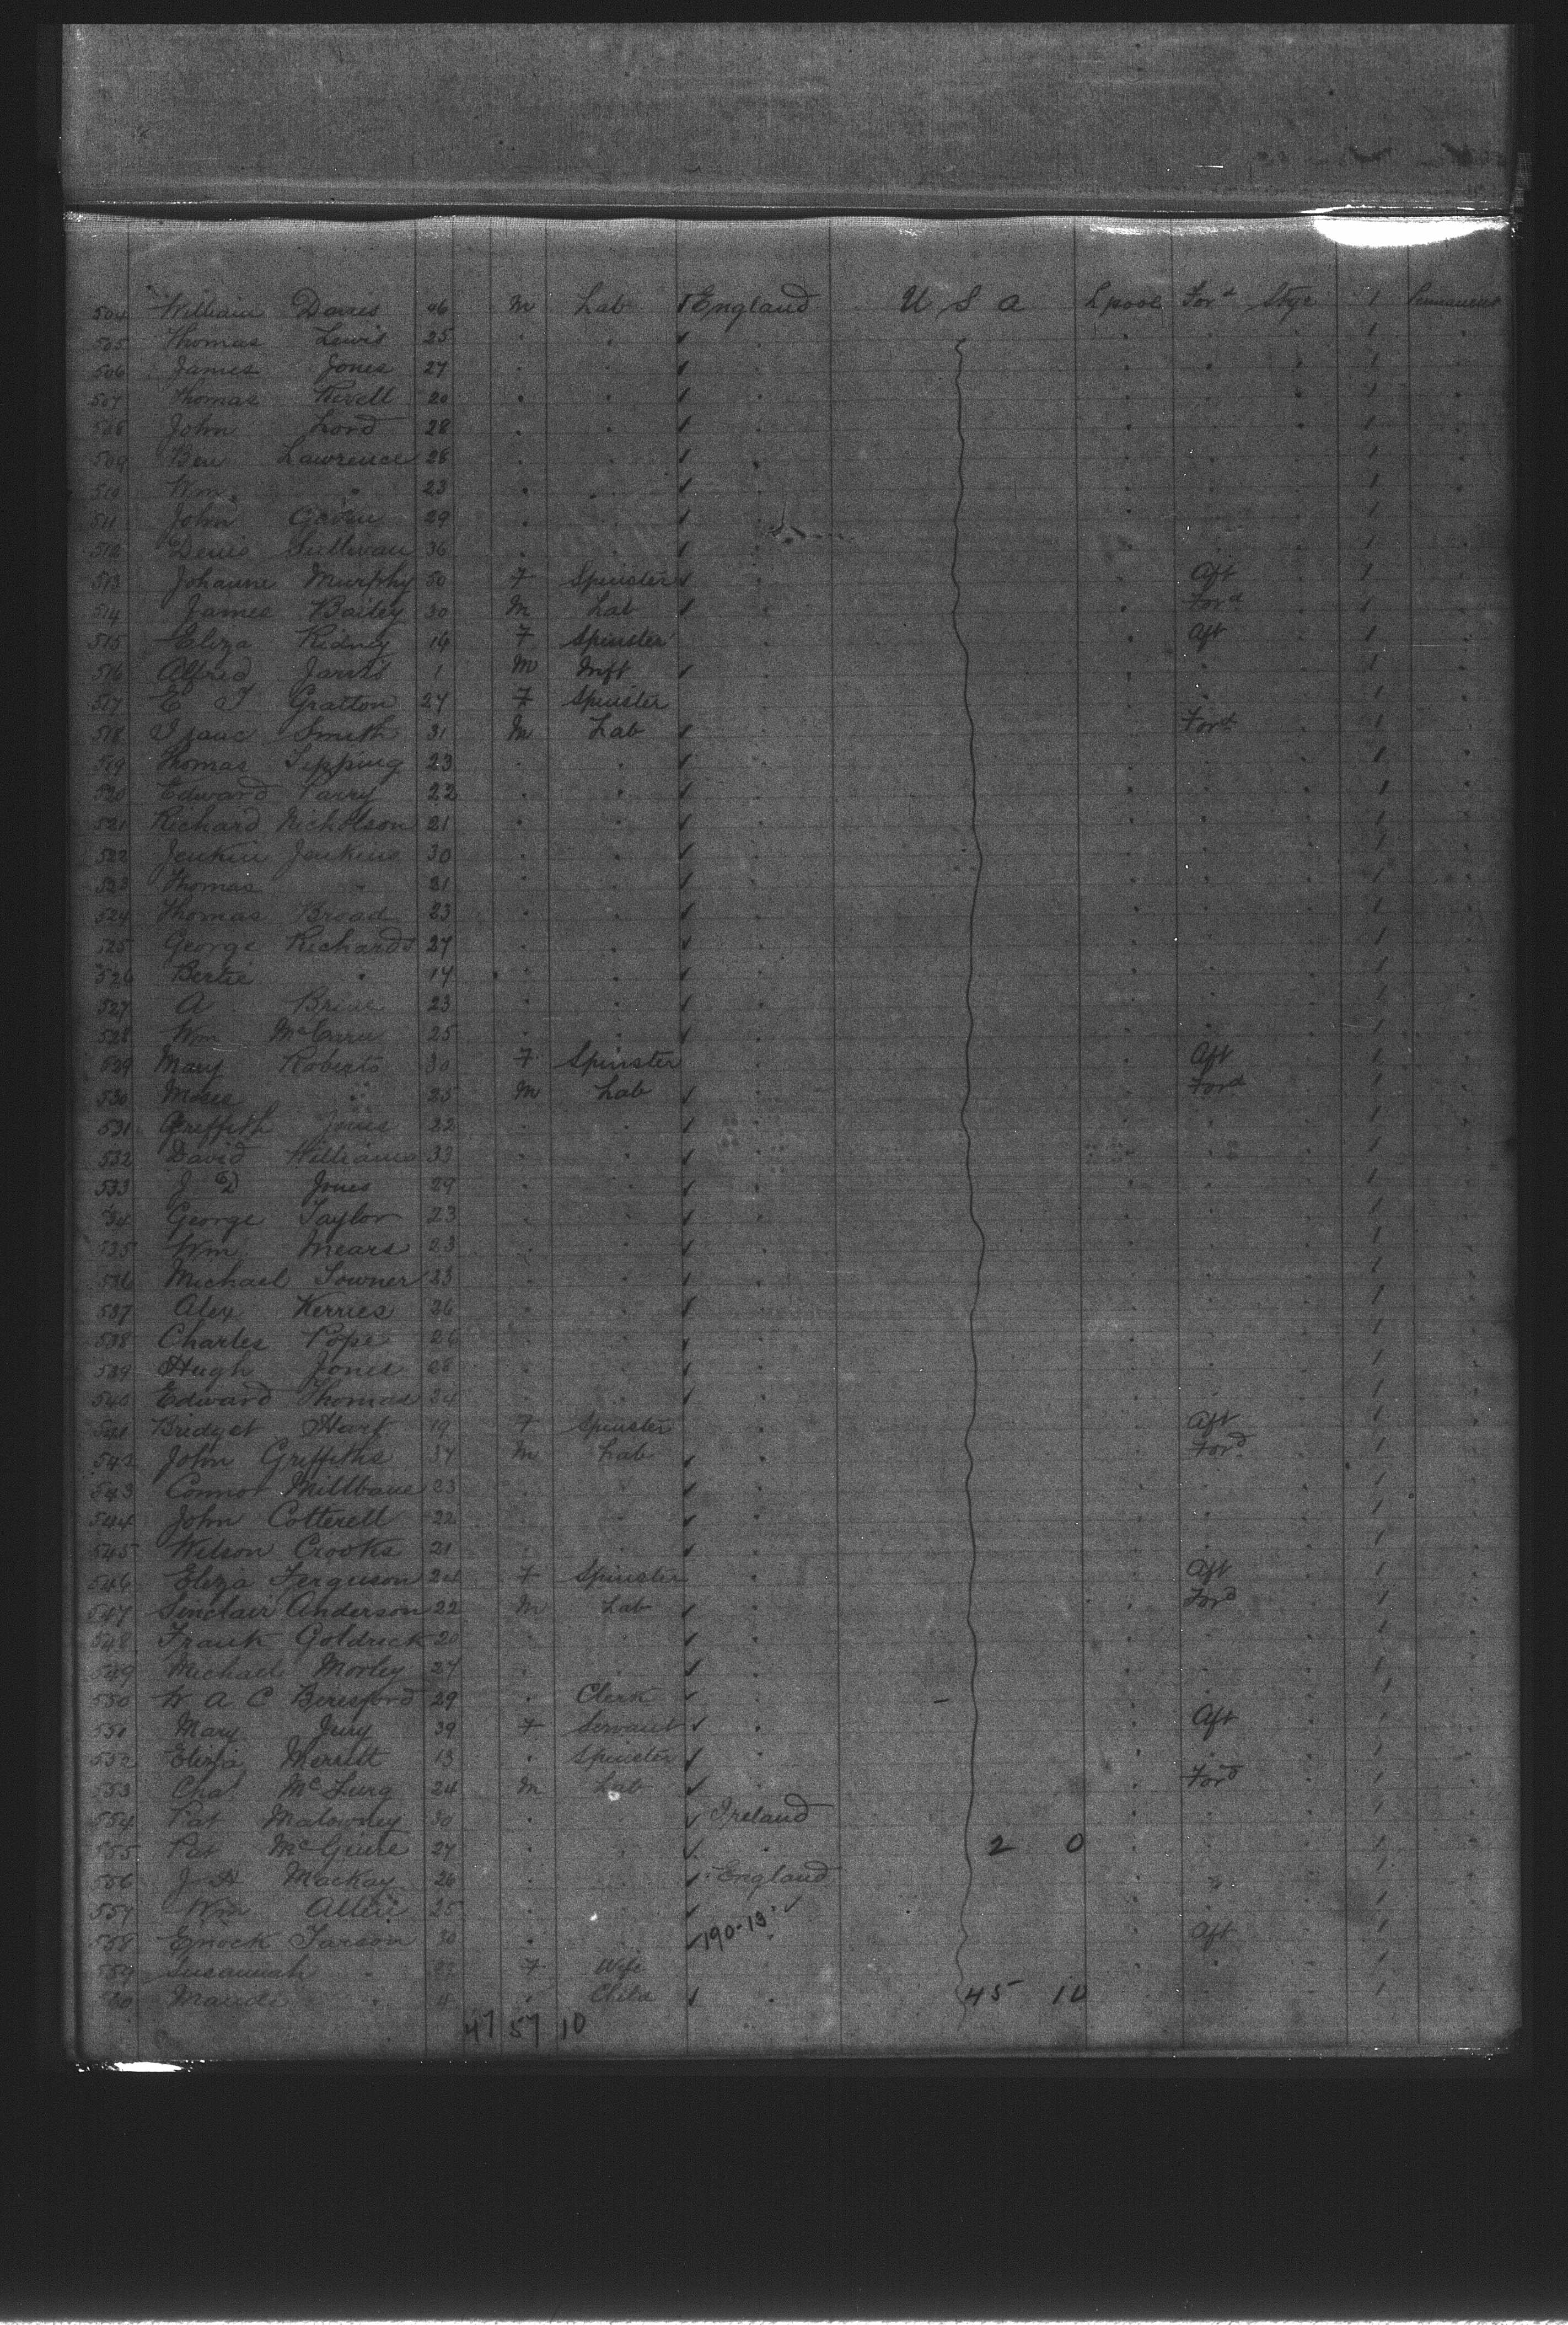 504 William Davies 46 M Lab England U S A Lpool Ford Stge 1 Permanent
505 Thomas Lewis 25 1
506 James Jones 27 1
507 Thomas Revell 20 1
508 John Lord 28 1
509 Ben Lawrence 28 1
510 Wm " 23 1
511 John Gavin 29 1
512 Denis Sullivan 36 1
513 Johanne Murphy 50 F Spinster Aft 1
514 James Bailey 30 M Lab Ford 1
515 Eliza Ridney 14 F Spinster Aft 1
516 Alfred Jarvis 1 M Inft 1
517 E J Gratton 24 F Spinster 1
518 Isaac Smith 31 M Lab Ford 1
519 Thomas Tepping 23 1
520 Edward Parry 22 1
521 Richard Nicholson 21 1
522 Jenkin Jenkins 30 1
523 Thomas " 21 1
524 Thomas Broad 23 1
525 George Richards 27 1
526 Bertie " 14 1
527 A Brise 23 1
528 Wm 25 1
529 Mary Roberts 30 F Spinster Aft 1
530 Moses " 25 M Lab Ford 1
531 Griffith Jones 22 1
532 David Williams 33 1
533 J D Jones 29 1
534 George Taylor 23 1
535 Wm Mears 23 1
536 Michael Towner 23 1
537 Alex Kerries 26 1
538 Charles Pope 26 1
539 Hugh Jones 28 1
540 Edward Thomas 24 1
541 Bridget Hart 19 F Spinster Aft 1
542 John Griffiths 37 M Lab Ford 1
543 Connor Millbane 23 1
544 John Cotterell 22 1
545 Wilson Crooks 21 1
546 Eliza Ferguson 24 F Spinster Aft 1
547 Sinclair Anderson 22 M Lab Ford 1
548 Frank Goldrick 20 1
549 Michael Morley 27 1
550 W A C Beresford 29 Clerk 1
551 Mary Jury 39 F Servant Aft 1
552 Eliza Merritt 13 Spinster 1
553 Chas McLurg 24 M Lab Ford 1
554 Pat Malowney 30 Ireland 1
555 Pat McGuire 27 2 0 1
556 J H Mackay 26 England 1
557 Wm Allen 25 1
558 Enock 30 190-13 Aft 1
559 Susannah " F Wife 1
560 Maude " 4 Child 45 10 1
47 57 10